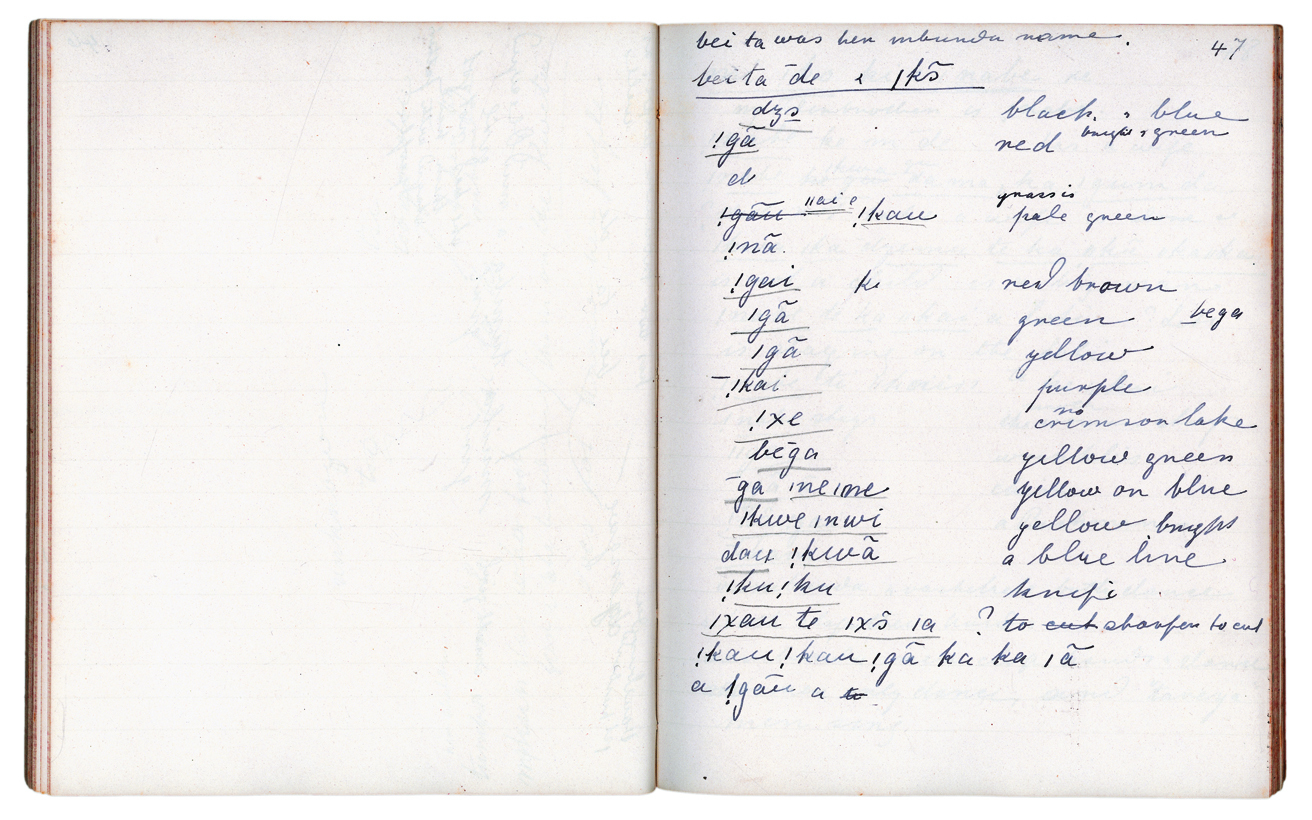 bei ta was her mbunda name. 47
bei ta de ı /kƨ̃
dzƨ black. , blue
!gã red bright , green
d
!gãu ııai e !kau grass is pale green
!nã.
!gai k red brown
ıgã green bega
ıgã yellow
!kai purple
!xe no crimson lake
bēga yellow green
ga ıneıne yellow on blue
ıkwe ınwi yellow bright
dau !kwã a blue line
!ku!ku knife
ıxau te ıxƨ̃ ıa ? to cut sharpen to cut
!kau!kau!gã ka ka ıã
a !gãu a te